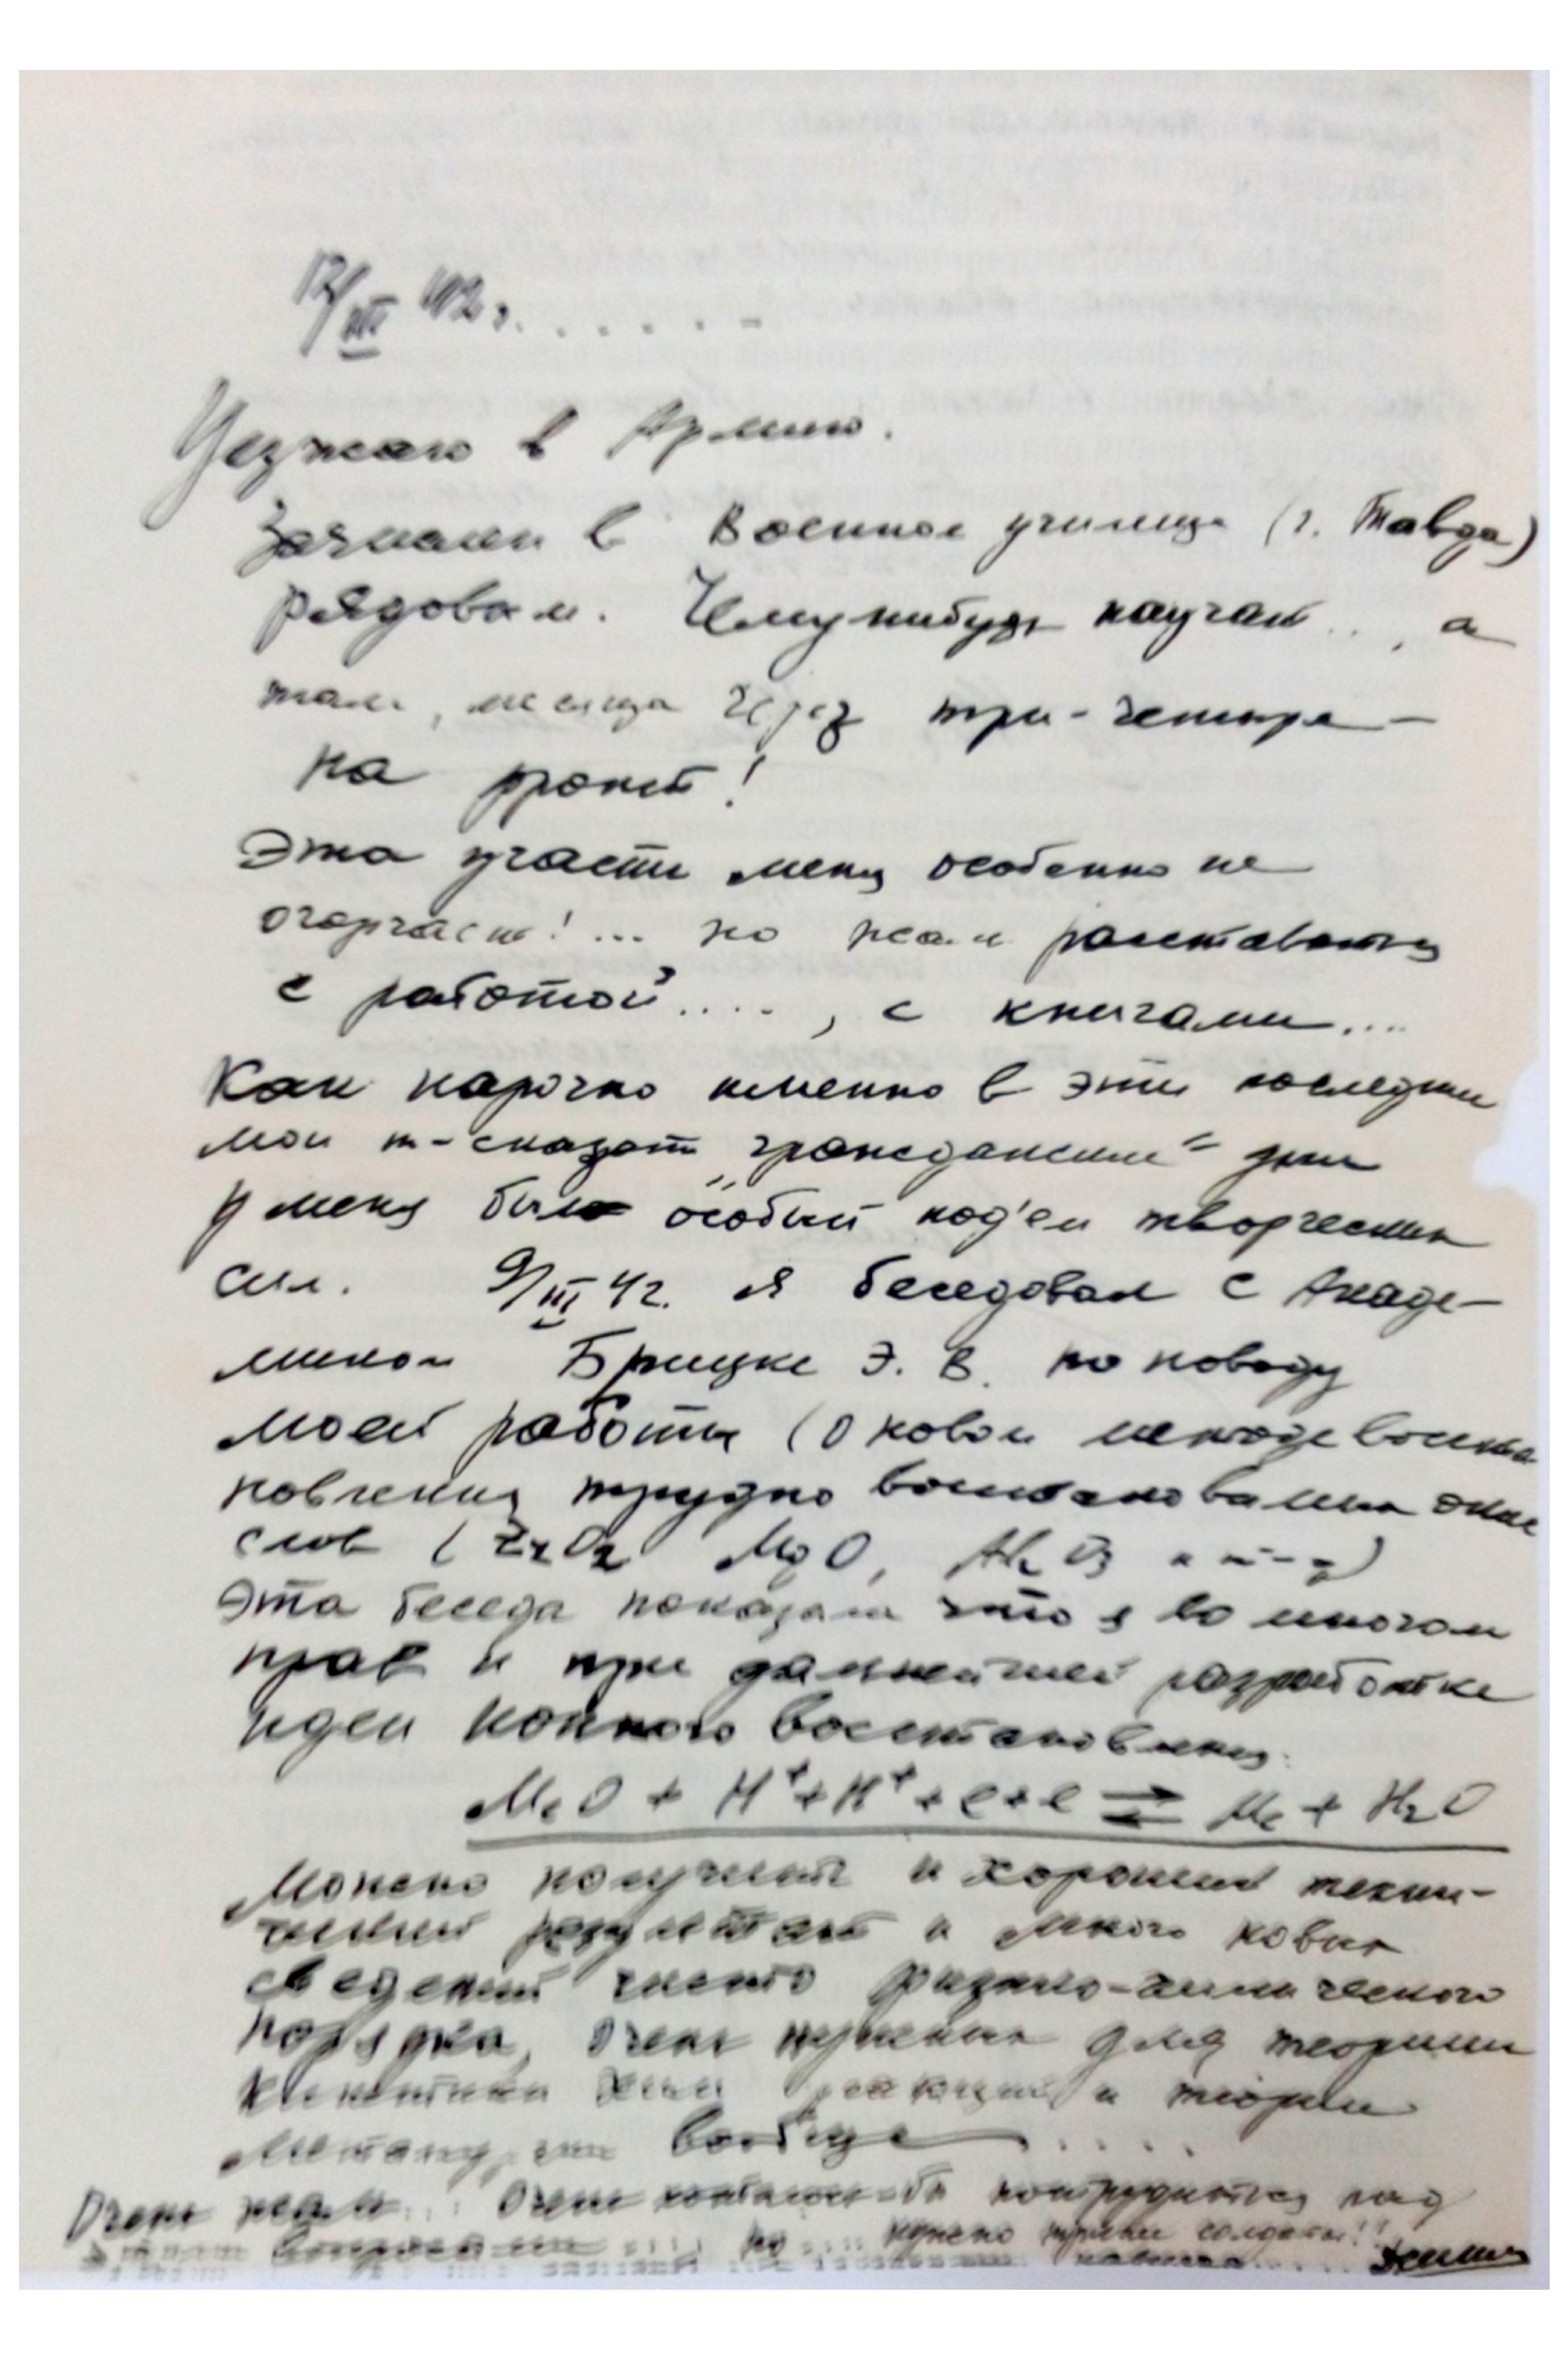 12/III 42 г. . . . . . -
Уезжаю в Армию.
Зачислен в Военное училище (г. Тавда)
рядовым. Чему нибудь научат . . , а
там, месяца через три-четыре —
на фронт!
Эта участь меня особенно не
огорчает! ... но жаль расставаться
с работой . . . . , с книгами . . . .
Как нарочно именно в эти последние
мои т-сказать „гражданские“ дни
у меня был особый под'ем творческих
сил. 9/III 42. я беседовал с Акаде-
миком Брицке Э. В. по поводу
моей работы (о новом методе восста
новления трудно восстановимых окис
слов (ZrO2 MgO, Al2O3 и т-д)
Эта беседа показала что я во многом
прав и при дальнейшей разработке
идеи ионного восстановления:
MeO + H⁺ + H⁺ + e + e ⇄ Me + H2O
Можно получить и хороший техни-
ческий результат и много новых
сведений чисто физико-химического
порядка, очень нужных для теории
кинетики хим реакций и теории
металлургии вообще . . . .
Очень жаль . . . Очень хотелось-бы потрудиться над
этими вопросами . . . . но . . . нужно нужны солдаты!!